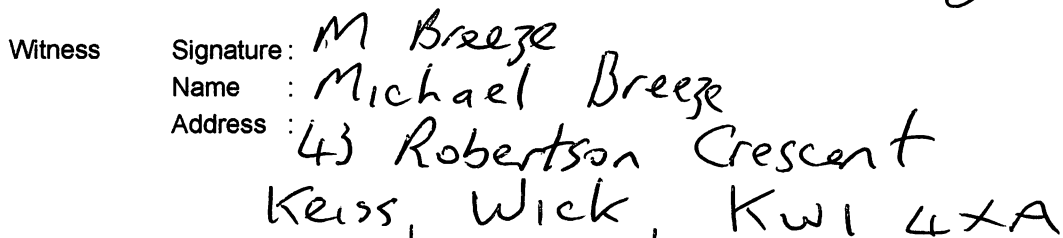 Witness Signature: M Breeze
Name : Michael Breeze
Address : 43 Robertson Crescent
Keiss, Wick, KW1 4XA